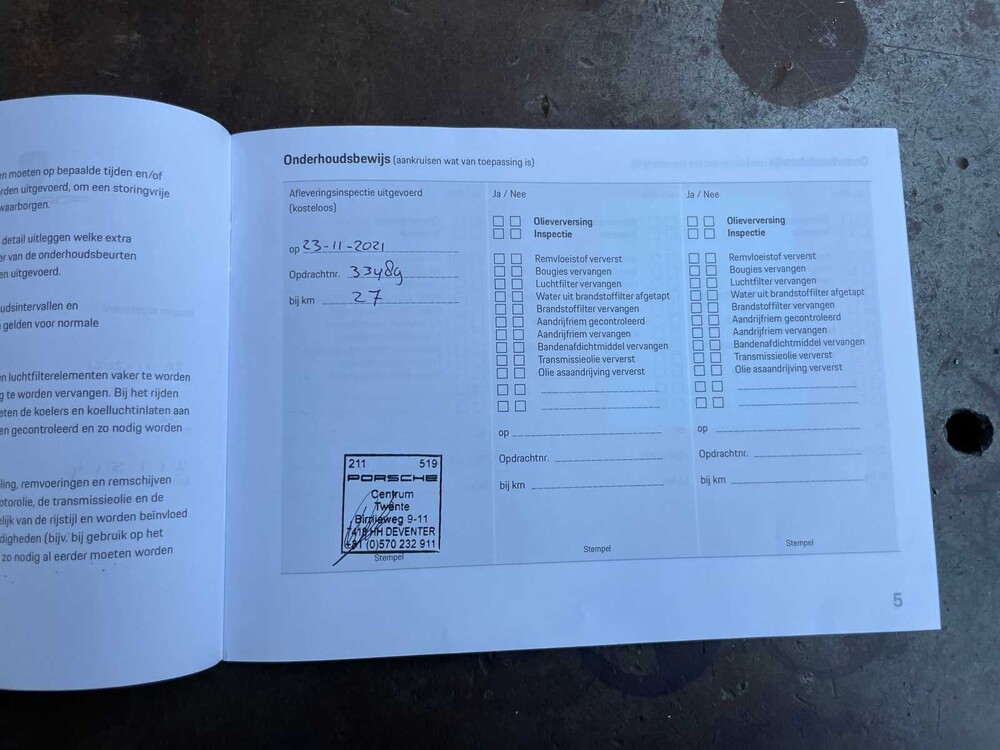 en moeten op bepaalde tijden en/of
rden uitgevoerd, om een storingvrije
waarborgen.
detail uitleggen welke extra
er van de onderhoudsbeurten
en uitgevoerd.
udsintervallen en
gelden voor normale
en luchtfilterelementen vaker te worden
g te worden vervangen. Bij het rijden
eten de koelers en koelluchtinlaten aan
en gecontroleerd en zo nodig worden
ling, remvoeringen en remschijven
otorolie, de transmissieolie en de
elijk van de rijstijl en worden beïnvloed
digheden (bijv. bij gebruik op het
zo nodig al eerder moeten worden
Onderhoudsbewijs (aankruisen wat van toepassing is)
Afleveringsinspectie uitgevoerd
(kosteloos)
op 23-11-2021
Opdrachtnr. 33489
bij km 27
211 519
PORSCHE
Centrum
Twente
Birnieweg 9-11
7418 HH DEVENTER
+31 (0)570 232 911
Stempel
Ja / Nee
Olieverversing
Inspectie
Remvloeistof ververst
Bougies vervangen
Luchtfilter vervangen
Water uit brandstoffilter afgetapt
Brandstoffilter vervangen
Aandrijfriem gecontroleerd
Aandrijfriem vervangen
Bandenafdichtmiddel vervangen
Transmissieolie ververst
Olie asaandrijving ververst
op
Opdrachtnr.
bij km
Stempel
Ja / Nee
Olieverversing
Inspectie
Remvloeistof ververst
Bougies vervangen
Luchtfilter vervangen
Water uit brandstoffilter afgetapt
Brandstoffilter vervangen
Aandrijfriem gecontroleerd
Aandrijfriem vervangen
Bandenafdichtmiddel vervangen
Transmissieolie ververst
Olie asaandrijving ververst
op
Opdrachtnr.
bij km
Stempel
5